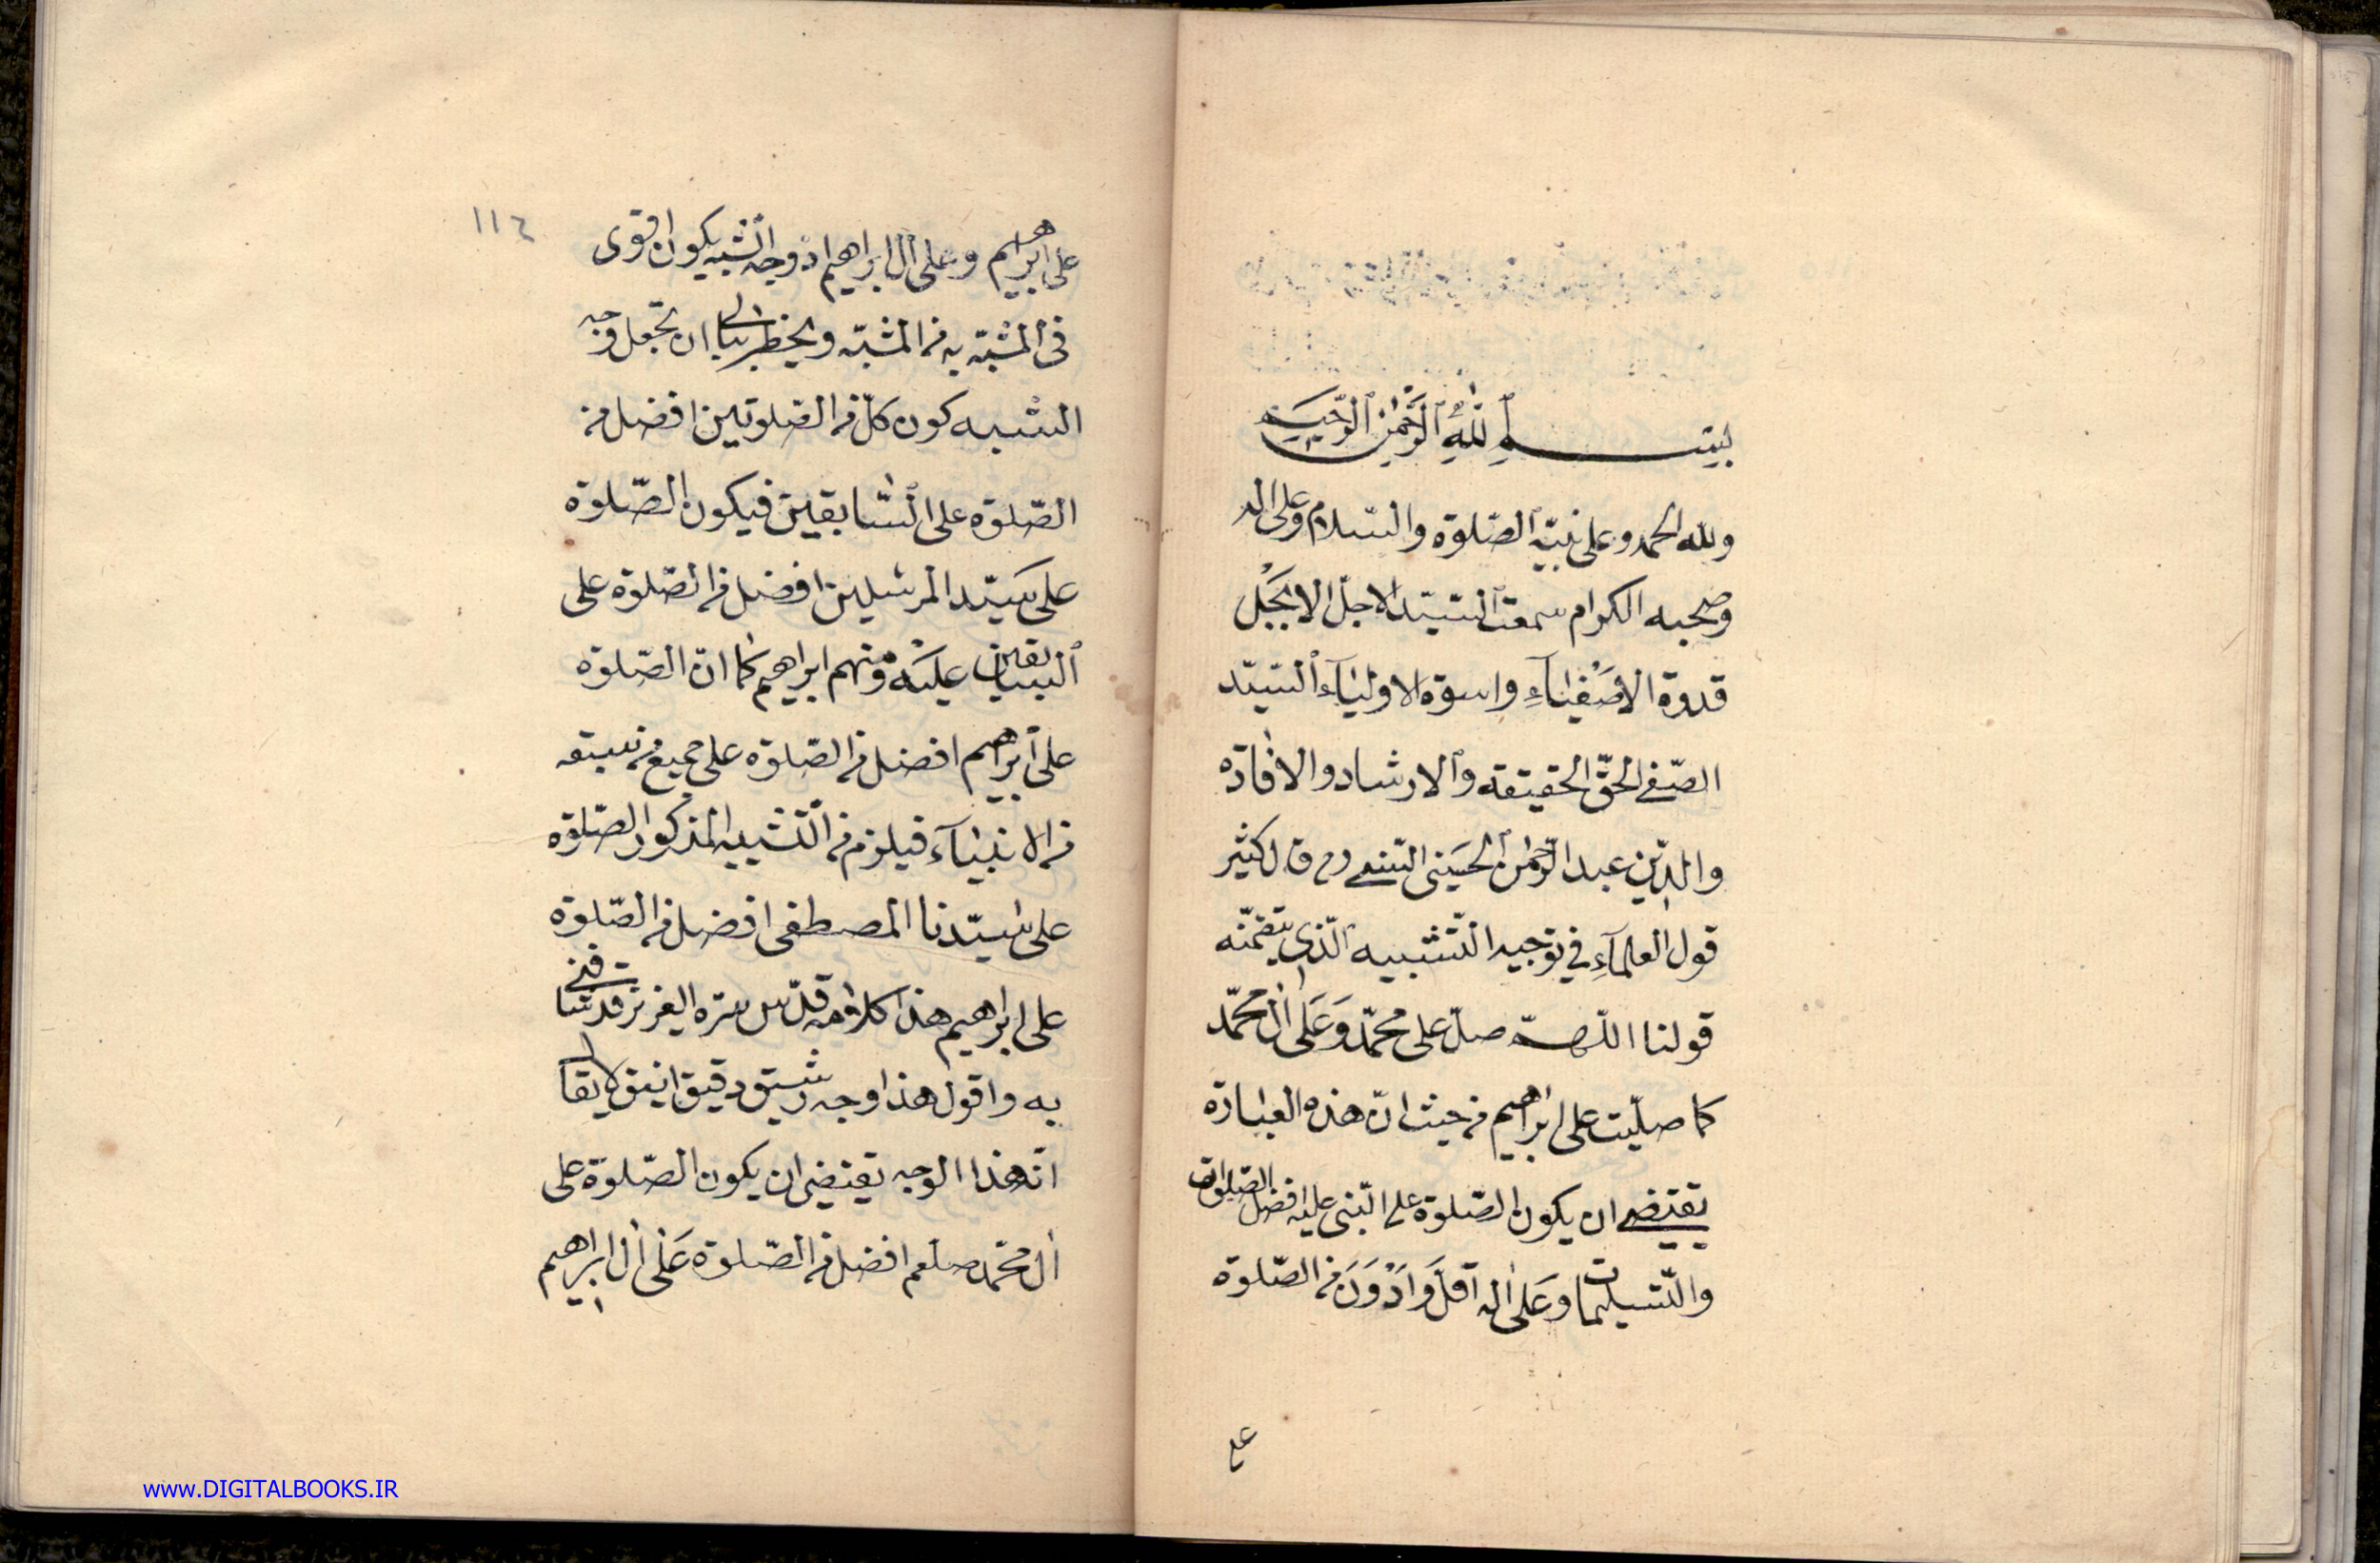 بسم الله الرحمن الرحيم
ولله الحمد وعلى نبيّه الصّلوة والسّلام وعلى اله
وصحبه الكرام سمعت السّيّد الاجلّ الابجل
قدوة الاصفياء واسوة الاولياء السّيّد
الصّفى الحقّ الحقيقة والارشاد والافادة
والدّين عبد الرّحمن الحسينى كثير
قول العلمآء في توجيه التّشبيه الّذى يتضمّنه
قولنا اللّهمّ صلّ على محمّد وَعَلَى ال محمّد
كما صلّيت على ابراهيم من حيث انّ هذه العبارة
يقتضى ان يكون الصّلوة على النّبى عليه افضل الصّلوات
والتّسليمات وعَلى اله اقلّ وَادْوَنَ من الصّلوة
على
١١٤
على ابراهيم وعلى ال ابراهيم اذ وجه الشبه يكون اقوى
فى المشبّه به من المشبّه ويخطر ببالى ان تجعل وجه
الشبه كون كلّ من الصّلوتين افضل من
الصّلوة على السّابقين فيكون الصّلوة
على سيّد المرسلين افضل من الصّلوة على
السابقين عليه ومنهم ابراهيم كما انّ الصّلوة
على ابراهيم افضل من الصّلوة على جميع من سبقه
من الانبيآء فيلزم من التّشبيه المذكور الصّلوة
على سيّدنا المصطفى افضل من الصّلوة
على ابراهيم هذا كلامه قدّس سرّه العزيز قد شافنى
به واقول هذا وجه رشيق دقيق انيق لا يقال
انّ هذا الوجه يقتضى ان يكون الصّلوة على
ال محمّد صلعم افضل من الصّلوة عَلى ال ابراهيم
www.DIGITALBOOKS.IR